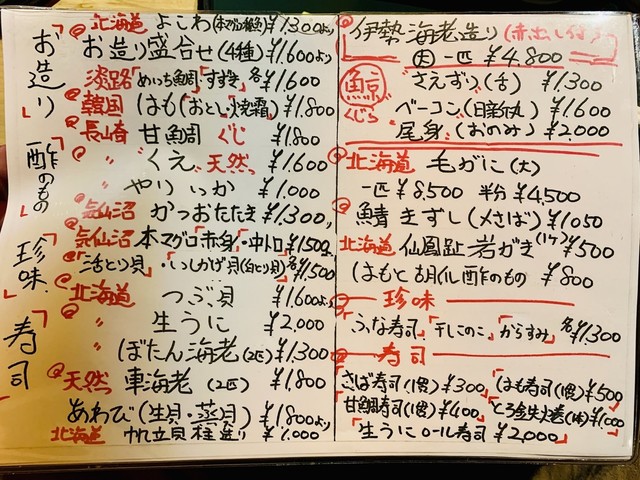 お造り 酢のもの 珍味 寿司
北海道 よこわ(本マグロ稚魚)¥1300より
お造り盛合せ(4種)¥1600より
淡路 めいち鯛 すずき 各¥1600
韓国 はも(おとし・焼霜)¥1800
長崎 甘鯛 ぐじ ¥1800
〃 くえ 天然 ¥1600
やりいか ¥1000
気仙沼 かつおたたき ¥1300
気仙沼 本マグロ「赤身」・中トロ ¥1500より
「活とり貝」・いしかげ貝(白とり貝)各¥1500
北海道 つぶ貝 ¥1600より
〃 生うに ¥2,000
〃 ぼたん海老(2匹)¥1300
天然 車海老(2匹)¥1800
あわび(生貝・蒸貝)¥1800より
北海道 帆立貝柱造り ¥1,000
伊勢海老造り(赤出し付)
(大)一匹 ¥4,800
鯨 くじら さえずり(舌) ¥1300
ベーコン ¥1600
尾身(おのみ) ¥2000
北海道 毛がに(大)
一匹¥8,500 半分¥4,500
鯖きずし(〆さば)¥1050
北海道 仙鳳趾岩がき(1ケ)¥500
はもと胡瓜酢のもの ¥800
珍味
ふな寿司 干しこのこ からすみ 各¥1300
寿司
さば寿司(1貫)¥300 はも寿司(1貫)¥500
甘鯛寿司(1貫)¥400 とろ鉄火巻(1本)¥1,000
生うにロール寿司 ¥2000